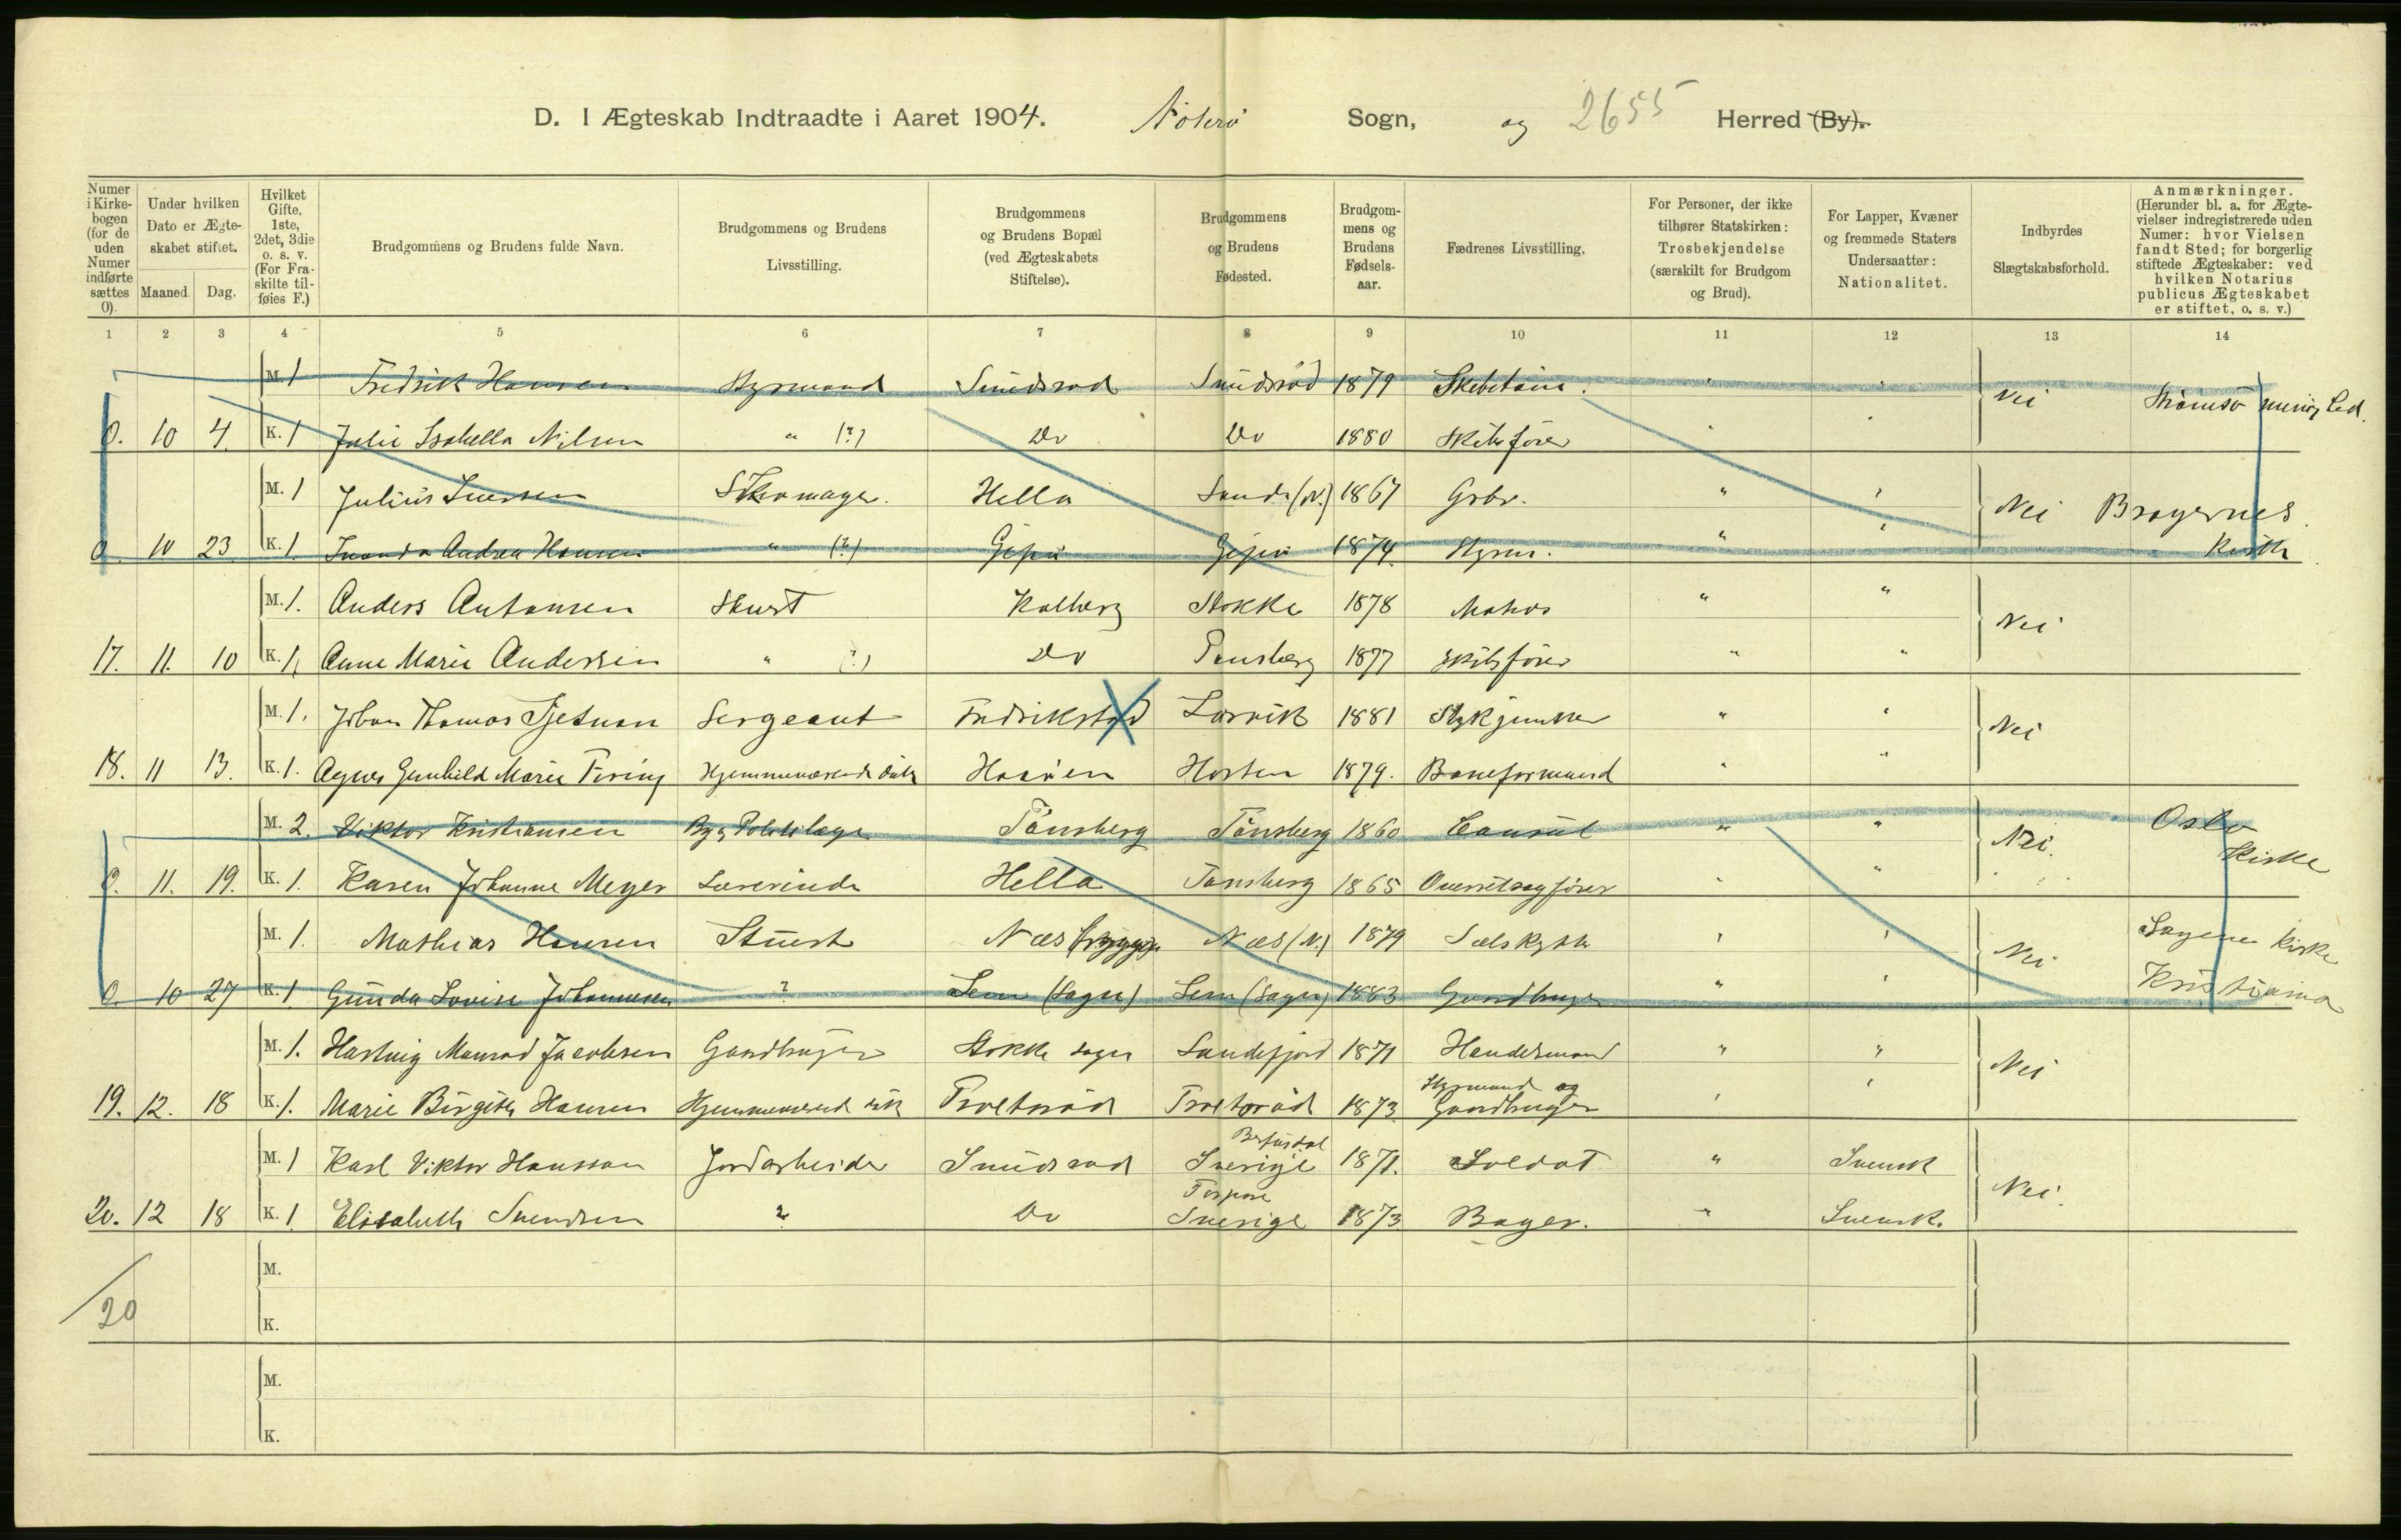 D. I Ægteskab Indtraadte i Aaret 1904. Nøterø Sogn, og 2655 Herred (By).
Numer i Kirkebogen (for de uden Numer indførte sættes 0).
Under hvilken Dato er Ægteskabet stiftet.
Maaned. Dag.
Hvilket Gifte. 1ste, 2det, 3die o. s. v. (For Fraskilte tilføies F.)
Brudgommens og Brudens fulde Navn.
Brudgommens og Brudens Livsstilling.
Brudgommens og Brudens Bopæl (ved Ægteskabets Stiftelse).
Brudgommens og Brudens Fødested.
Brudgommens og Brudens Fødselsaar.
Fædrenes Livsstilling.
For Personer, der ikke tilhører Statskirken: Trosbekjendelse (særskilt for Brudgom og Brud).
For Lapper, Kvæner og fremmede Staters Undersaatter: Nationalitet.
Indbyrdes Slægtskabsforhold.
Anmærkninger. (Herunder bl. a. for Ægtevielser indregistrerede uden Numer: hvor Vielsen fandt Sted; for borgerlig stiftede Ægteskaber: ved hvilken Notarius publicus Ægteskabet er stiftet, o. s. v.)
1 2 3 4 5 6 7 8 9 10 11 12 13 14
M. 1 Fredrik Hansen Styrmand Smidsrød Smidsrød 1879 " " Nei Strømsø
0. 10 4. K. 1 Julie Isabella Nilsen " (?) Do Do 1880 Skibsfører " "
M. 1 Julius Iversen Skomager. Hella Sande (N.) 1867 Grbr. " " Nei Bragernes
0. 10 23 K. 1. Andrea Hansen " (?) Gipø Gipø 1874. Styrm. " " Kirke
M. 1. Anders Antonsen Stuert Kolberg Stokke 1878 " " Nei
17. 11. 10 K. 1, Anne Marie Andersen " (?) Do Tønsberg 1877 Skibsfører " "
M. 1. Johan Thomas Sergeant Fredrikstad Larvik 1881 Stykjunker " " Nei
18. 11 13. K. 1. Agnes Gunhild Marie Hjemmeværende Horten 1879. Baneformand " "
M. 2. Viktor Kristiansen Tønsberg Tønsberg 1860 Consul " " Nei. Oslo
0. 11. 19. K. 1. Karen Johanne Meyer Lærerinde Hella Tønsberg 1865 Overretsagfører " " Kirke
M. 1. Mathias Hansen Stuert Næs Næs (N.) 1879 " " Nei. Sagene Kirke
0. 10 27 K. 1 Gunda Lovise Johannesen ? Sem (Sogn) Sem (Sogn) 1883 Gaardbruger " " Kristiania
M. 1. Jacobsen Gaardbruger Stokke sogn Sandefjord 1871 Handelsmand " " Nei
Styrmand og
19. 12. 18 K. 1. Marie Birgitte Hansen Hjemmeværende 1873. Gaardbruger " "
M. 1 Karl Viktor Hansson Jordarbeider Smidsrød Sverige 1871. Soldat " Svensk Nei.
20. 12 18 K. 1 Elisabeth Svendsen ? Do Sverige 1873 Bager. " Svensk.
M.
20
K.
M.
K.